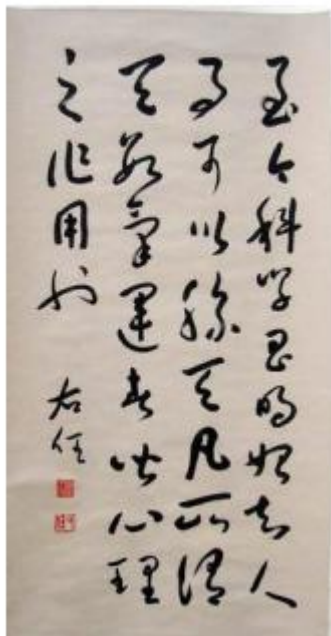 至今科學昌明始知人
事可以勝天凡所謂
天數氣運者皆心理
之作用也
右任